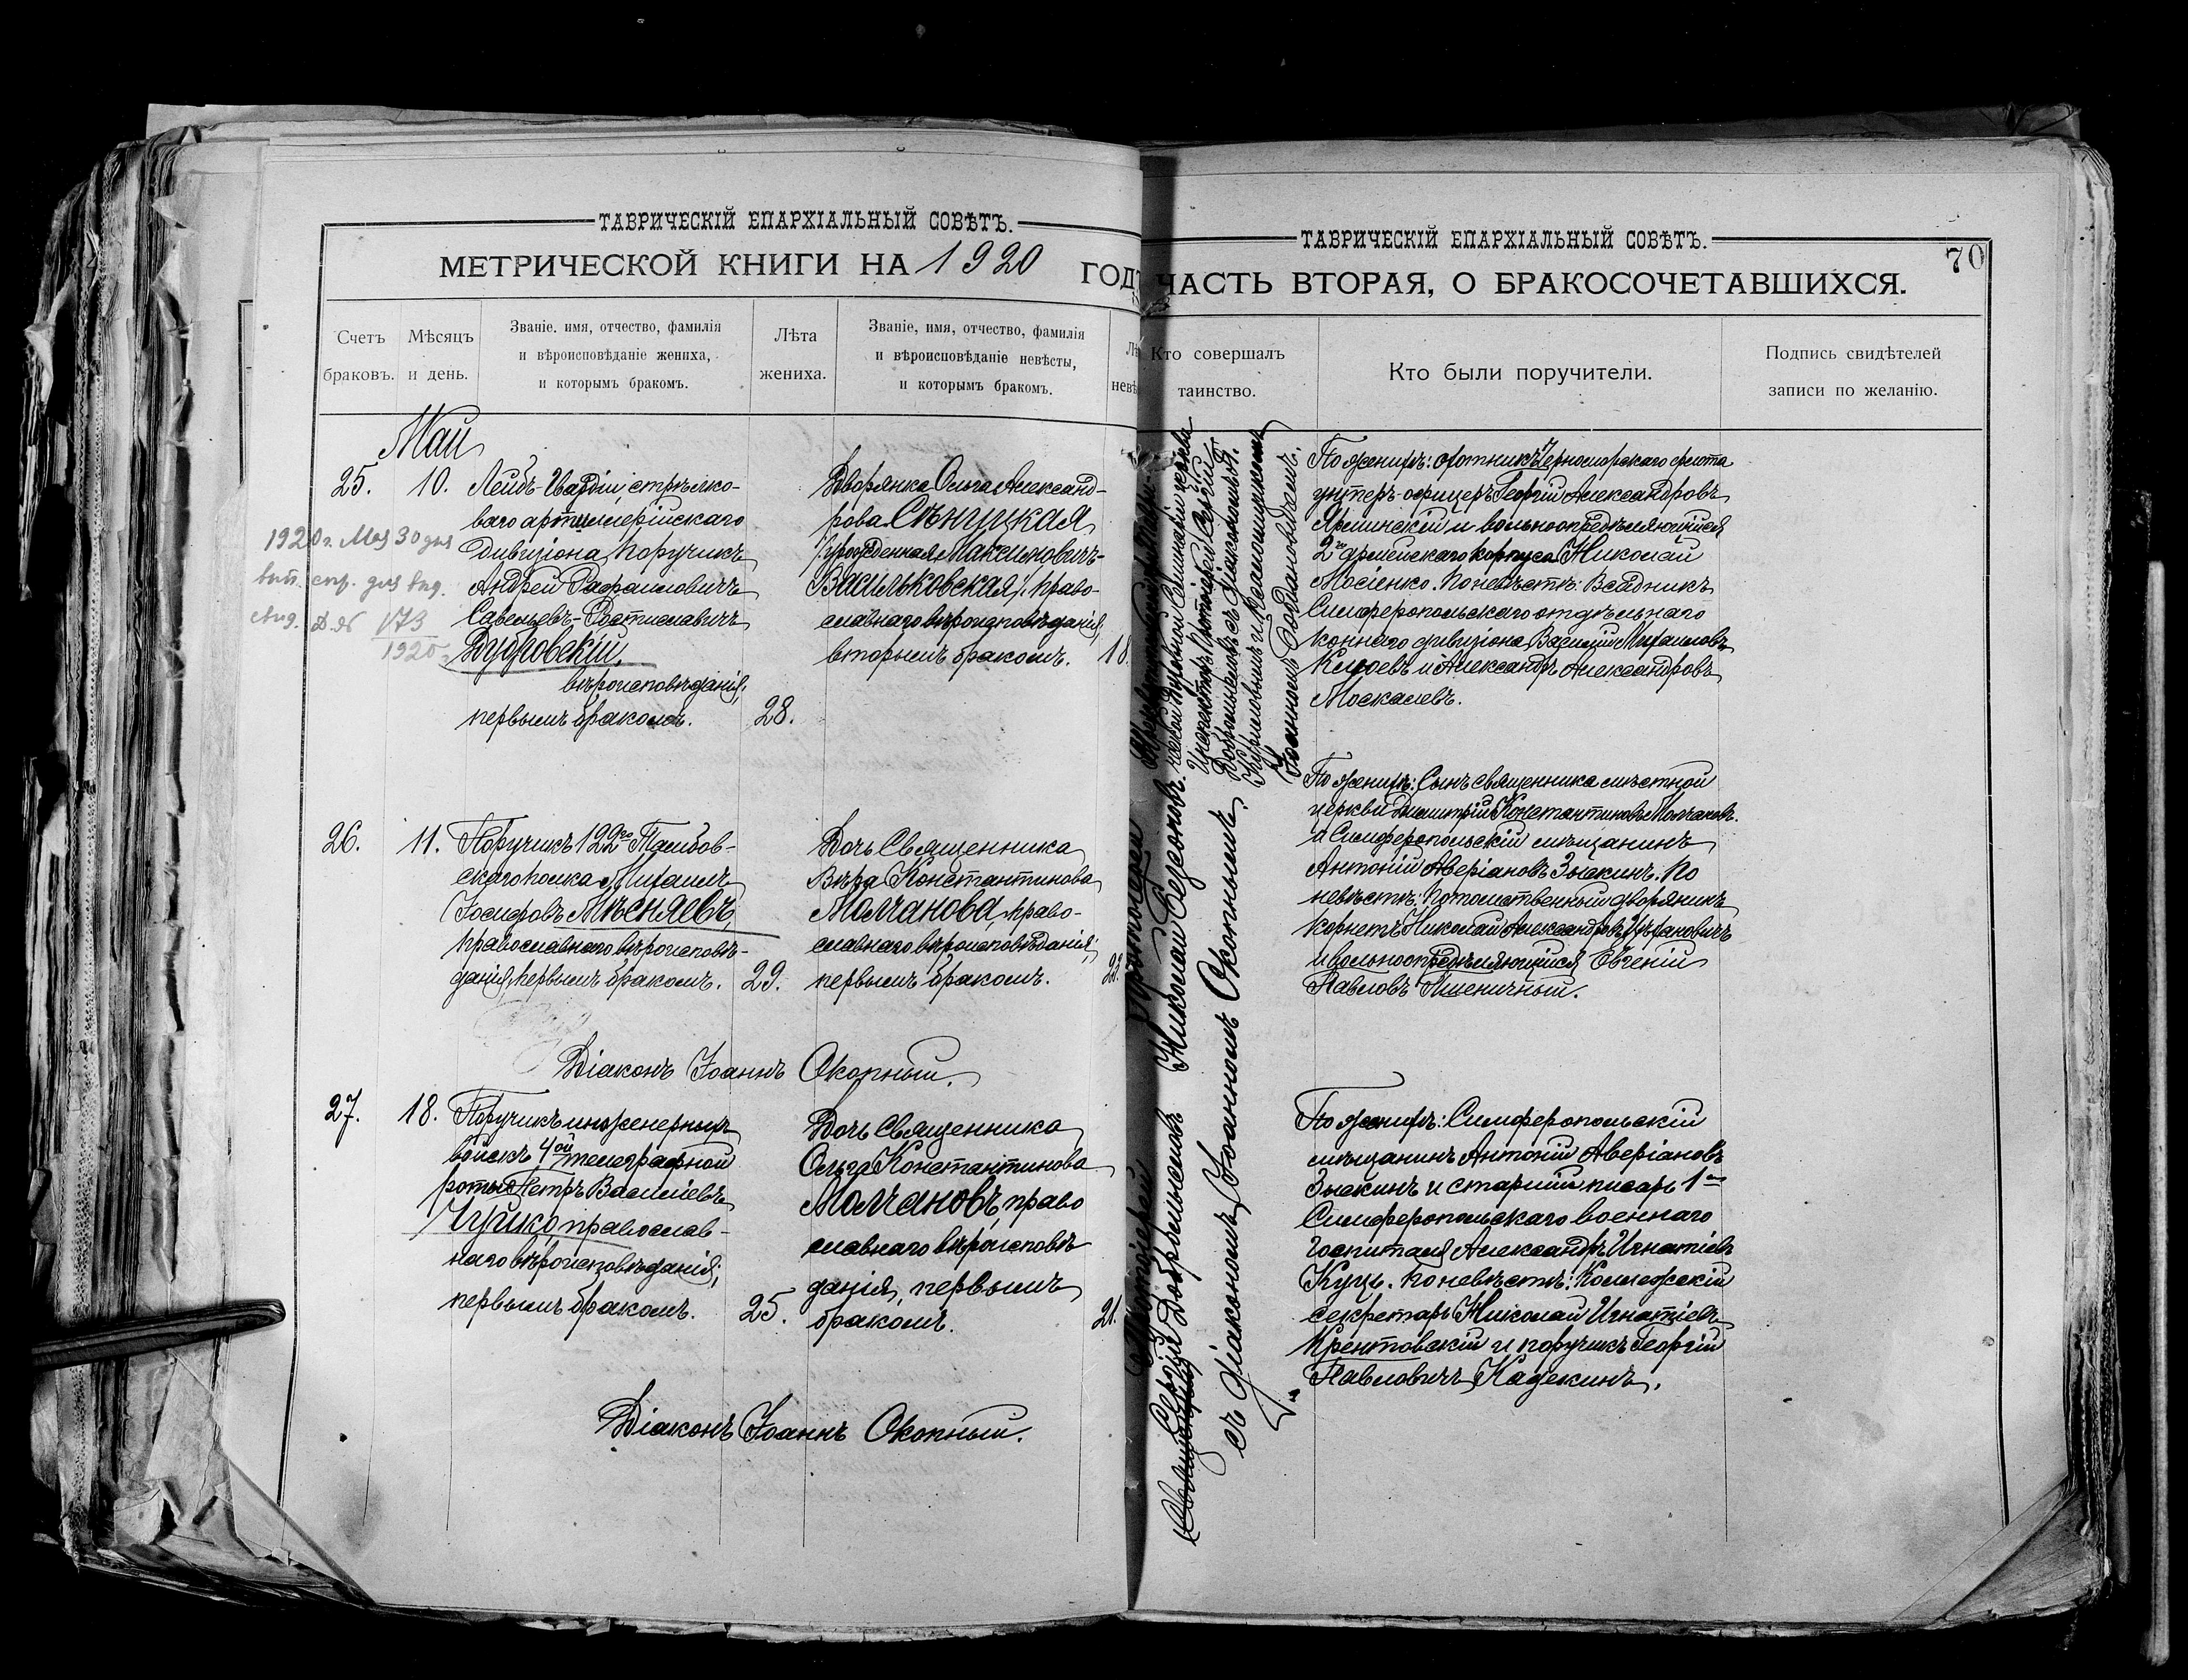 ТАВРИЧЕСКІЙ ЕПАРХІАЛЬНЫЙ СОВѢТЪ.
МЕТРИЧЕСКОЙ КНИГИ НА 1920 ГОДЪ
Счетъ браковъ.
Мѣсяцъ и день.
Званіе. имя, отчество, фамилія
и вѣроисповѣданіе жениха,
и которымъ бракомъ.
Лѣта жениха.
Званіе, имя, отчество, фамилія
и вѣроисповѣданіе невѣсты,
и которымъ бракомъ.
Май
25.
10.
Лейбъ-Гвардіи стрѣлко-
ваго артиллерійскаго
дивизіона Поручикъ
Андрей Рафаиловичъ
Савельевъ-Ростиславичъ
Дубровскій,
вѣроисповѣданія,
первымъ бракомъ.
28.
Дворянка Ольга Александ-
рова Сѣнгуцкая
/урожденная Максимовичъ-
Васильковская/, право-
славнаго вѣроисповѣданія,
вторымъ бракомъ.
18.
1920 г. Мая 30 дня
вып. спр. для
173
1920
26.
11.
Поручикъ 122го Тамбов-
скаго полка Михаилъ
Іосифовъ Мѣсняевъ,
православнаго вѣроисповѣ-
данія, первымъ бракомъ.
29.
Дочь Священника
Вѣра Константинова
Молчанова, право-
славнаго вѣроисповѣданія;
первымъ бракомъ.
22.
Діаконъ Іоаннъ Окопный.
27.
18.
Поручикъ инженерныхъ
войскъ 4ой телеграфной
роты Петръ Василіевъ
православ-
наго вѣроисповѣданія;
первымъ бракомъ.
25.
Дочь Священника
Ольга Константинова
Молчановъ, право
славнаго вѣроисповѣ
данія, первымъ
бракомъ.
21.
Діаконъ Іоаннъ Окопный.
ТАВРИЧЕСКІЙ ЕПАРХІАЛЬНЫЙ СОВѢТЪ.
70
ЧАСТЬ ВТОРАЯ, О БРАКОСОЧЕТАВШИХСЯ.
Кто совершалъ таинство.
Кто были поручители.
Подпись свидѣтелей
записи по желанію.
Духовной Семинаріи
Инспекторъ Протоіерей Сергій
Добромысловъ съ Діакономъ
Кирилловымъ и
Іоанномъ Богдановичемъ.
По женихѣ: охотникъ Черноморскаго флота
унтеръ-офицеръ Георгій Александровъ
Яршинскій и вольноопредѣляющійся
2го армейскаго корпуса Николай
Мосіенко. По невѣстѣ: Всадникъ
Симферопольскаго отдѣльнаго
коннаго дивизіона Василій Михаиловъ
и Александръ Александровъ
Москалевъ.
Протоіерей
Николай Сезоновъ
съ діакономъ Іоанномъ Окопнымъ.
По женихѣ: Сынъ священника мѣстной
церкви Димитрій Константиновъ Молчановъ.
и Симферопольскій мѣщанинъ
Антоній Аверіановъ Зыскинъ. По
невѣстѣ: потомственный дворянинъ
корнетъ Николай Александровъ
и вольноопредѣляющійся Евгеній
Павловъ Пшеничный.
Протоіерей
Сергій Добромысловъ
По женихѣ: Симферопольскій
мѣщанинъ Антоній Аверіановъ
Зыскинъ и старшій писарь 1го
Симферопольскаго военнаго
госпиталя Александръ Игнатіевъ
Куцъ. По невѣстѣ: Коллежскій
секретарь Николай Игнатіевъ
Крентовскій и поручикъ Георгій
Павловичъ Кадекинъ.